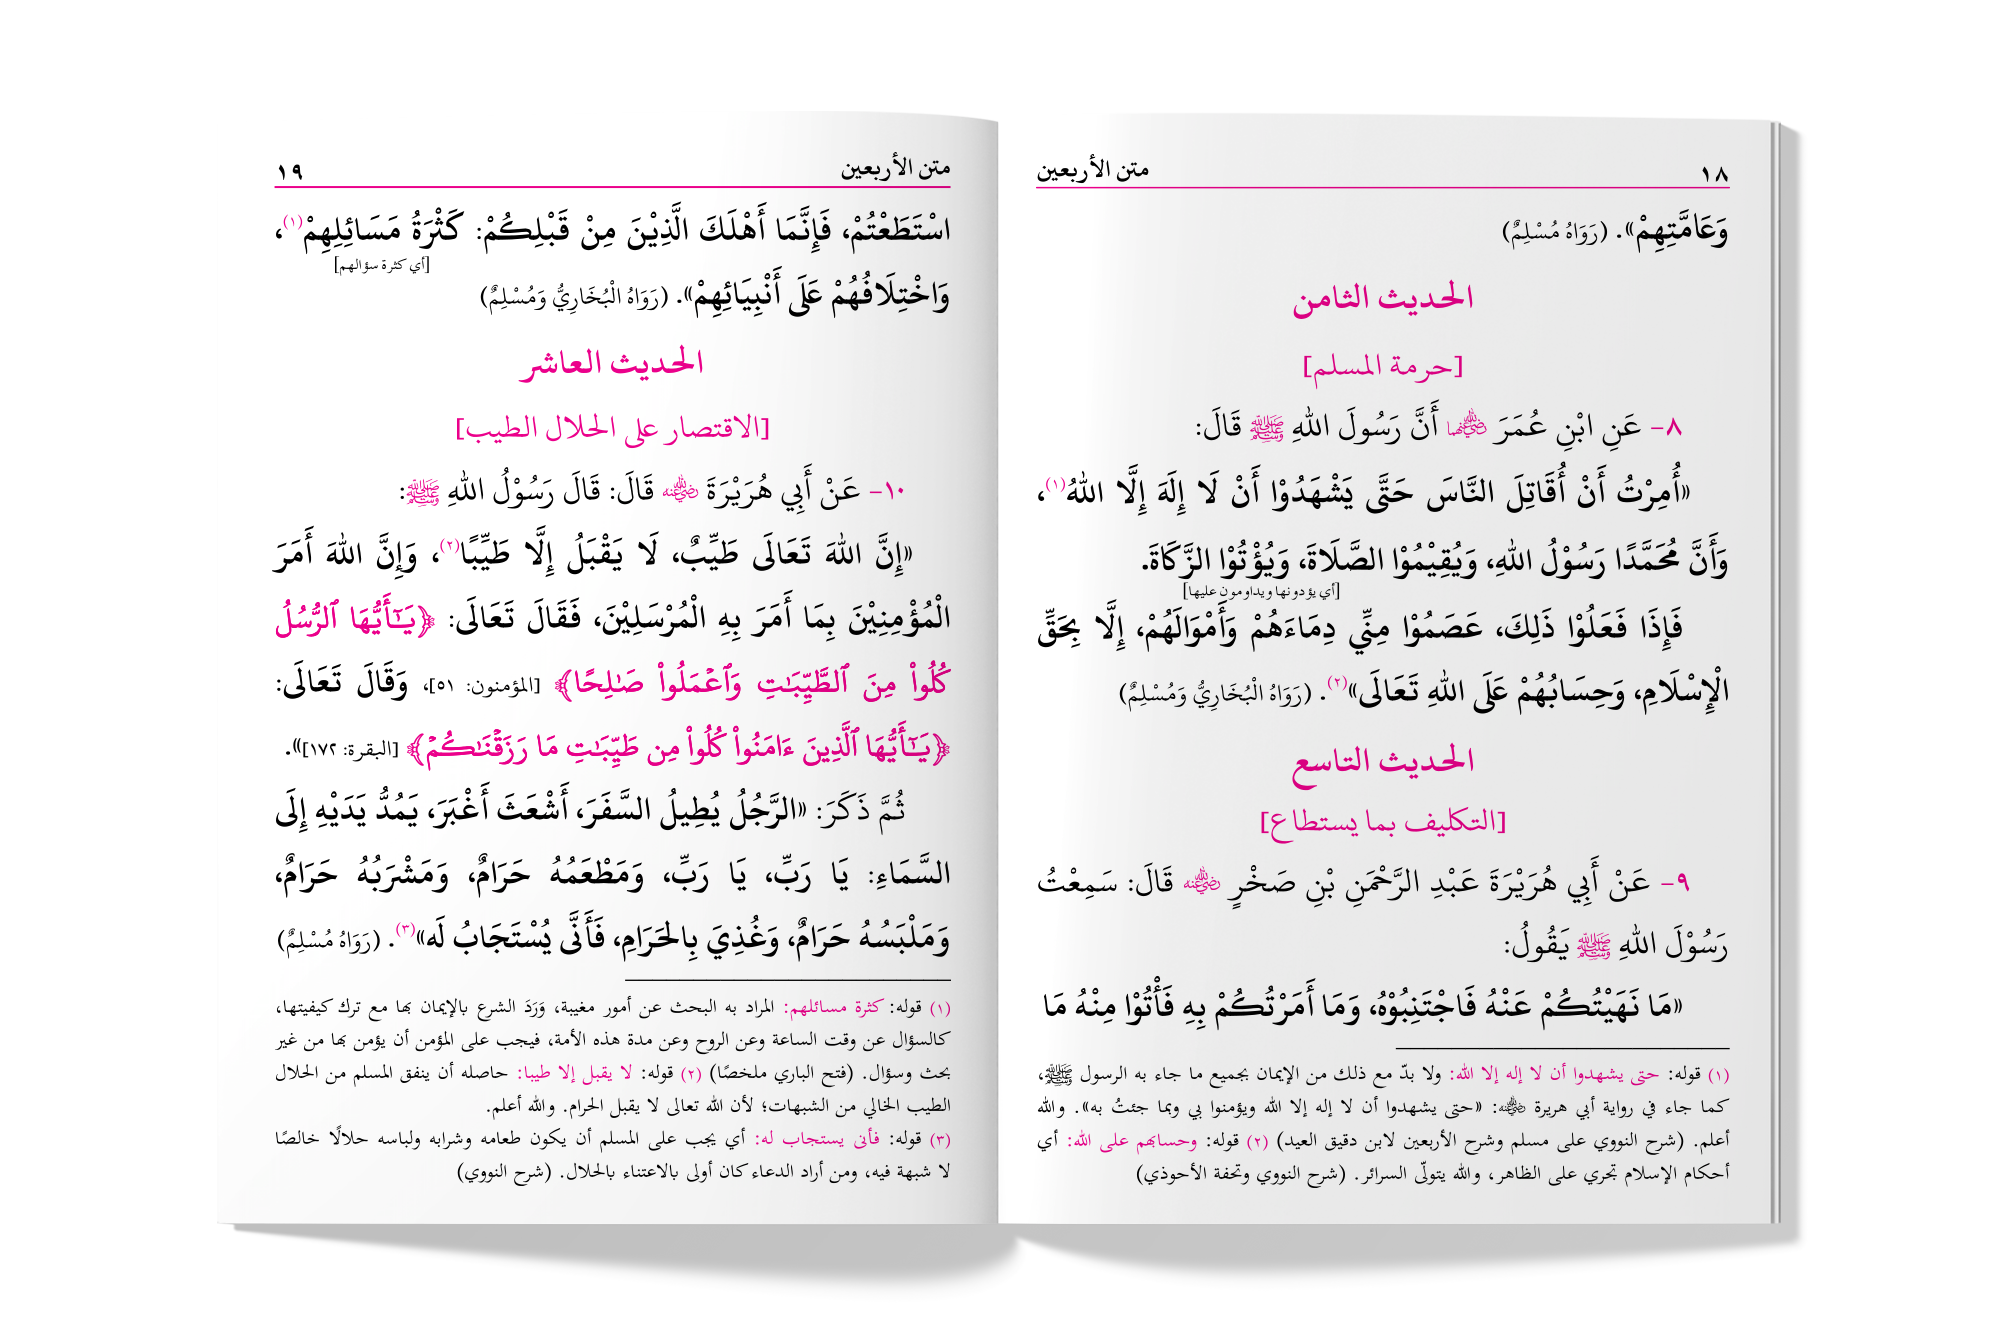 ١٨ متن الأربعين
وَعَامَّتِهِمْ». (رَوَاهُ مُسْلِمٌ)
الحديث الثامن
[حرمة المسلم]
٨- عَنِ ابْنِ عُمَرَ رضي الله عنهما أَنَّ رَسُولَ اللهِ ﷺ قَالَ:
«أُمِرْتُ أَنْ أُقَاتِلَ النَّاسَ حَتَّى يَشْهَدُوْا أَنْ لَا إِلَهَ إِلَّا اللهُ(١)،
وَأَنَّ مُحَمَّدًا رَسُوْلُ اللهِ، وَيُقِيْمُوْا الصَّلَاةَ، وَيُؤْتُوْا الزَّكَاةَ.
[أي يؤدونها ويداومون عليها]
فَإِذَا فَعَلُوْا ذَلِكَ، عَصَمُوْا مِنِّي دِمَاءَهُمْ وَأَمْوَالَهُمْ، إِلَّا بِحَقِّ
الْإِسْلَامِ، وَحِسَابُهُمْ عَلَى اللهِ تَعَالَى»(٢). (رَوَاهُ الْبُخَارِيُّ وَمُسْلِمٌ)
الحديث التاسع
[التكليف بما يستطاع]
٩- عَنْ أَبِي هُرَيْرَةَ عَبْدِ الرَّحْمَنِ بْنِ صَخْرٍ رضي الله عنه قَالَ: سَمِعْتُ
رَسُوْلَ اللهِ ﷺ يَقُولُ:
«مَا نَهَيْتُكُمْ عَنْهُ فَاجْتَنِبُوْهُ، وَمَا أَمَرْتُكُمْ بِهِ فَأْتُوْا مِنْهُ مَا
(١) قوله: حتى يشهدوا أن لا إله إلا الله: ولا بدّ مع ذلك من الإيمان بجميع ما جاء به الرسول ﷺ،
كما جاء في رواية أبي هريرة رضي الله عنه: «حتى يشهدوا أن لا إله إلا الله ويؤمنوا بي وبما جئتُ به». والله
أعلم. (شرح النووي على مسلم وشرح الأربعين لابن دقيق العيد) (٢) قوله: وحسابهم على الله: أي
أحكام الإسلام تجري على الظاهر، والله يتولّى السرائر. (شرح النووي وتحفة الأحوذي)
متن الأربعين ١٩
اسْتَطَعْتُمْ، فَإِنَّمَا أَهْلَكَ الَّذِيْنَ مِنْ قَبْلِكُمْ: كَثْرَةُ مَسَائِلِهِمْ(١)،
[أي كثرة سؤالهم]
وَاخْتِلَافُهُمْ عَلَى أَنْبِيَائِهِمْ». (رَوَاهُ الْبُخَارِيُّ وَمُسْلِمٌ)
الحديث العاشر
[الاقتصار على الحلال الطيب]
١٠- عَنْ أَبِي هُرَيْرَةَ رضي الله عنه قَالَ: قَالَ رَسُوْلُ اللهِ ﷺ:
«إِنَّ اللهَ تَعَالَى طَيِّبٌ، لَا يَقْبَلُ إِلَّا طَيِّبًا(٢)، وَإِنَّ اللهَ أَمَرَ
الْمُؤْمِنِيْنَ بِمَا أَمَرَ بِهِ الْمُرْسَلِيْنَ، فَقَالَ تَعَالَى: ﴿يَـٰٓأَيُّهَا ٱلرُّسُلُ
كُلُواْ مِنَ ٱلطَّيِّبَـٰتِ وَٱعۡمَلُواْ صَـٰلِحًا﴾ [المؤمنون: ٥١]، وَقَالَ تَعَالَى:
﴿يَـٰٓأَيُّهَا ٱلَّذِينَ ءَامَنُواْ كُلُواْ مِن طَيِّبَـٰتِ مَا رَزَقۡنَـٰكُمۡ﴾ [البقرة: ١٧٢]».
ثُمَّ ذَكَرَ: «الرَّجُلُ يُطِيلُ السَّفَرَ، أَشْعَثَ أَغْبَرَ، يَمُدُّ يَدَيْهِ إِلَى
السَّمَاءِ: يَا رَبِّ، يَا رَبِّ، وَمَطْعَمُهُ حَرَامٌ، وَمَشْرَبُهُ حَرَامٌ،
وَمَلْبَسُهُ حَرَامٌ، وَغُذِيَ بِالحَرَامِ، فَأَنَّى يُسْتَجَابُ لَه»(٣). (رَوَاهُ مُسْلِمٌ)
(١) قوله: كثرة مسائلهم: المراد به البحث عن أمور مغيبة، وَرَدَ الشرع بالإيمان بها مع ترك كيفيتها،
كالسؤال عن وقت الساعة وعن الروح وعن مدة هذه الأمة، فيجب على المؤمن أن يؤمن بها من غير
بحث وسؤال. (فتح الباري ملخصًا) (٢) قوله: لا يقبل إلا طيبا: حاصله أن ينفق المسلم من الحلال
الطيب الخالي من الشبهات؛ لأن الله تعالى لا يقبل الحرام. والله أعلم.
(٣) قوله: فأنى يستجاب له: أي يجب على المسلم أن يكون طعامه وشرابه ولباسه حلالًا خالصًا
لا شبهة فيه، ومن أراد الدعاء كان أولى بالاعتناء بالحلال. (شرح النووي)